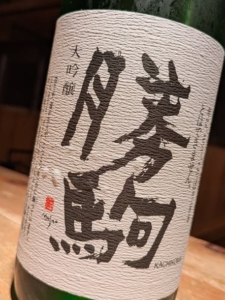 勝駒
大吟醸
KACHIKOMA